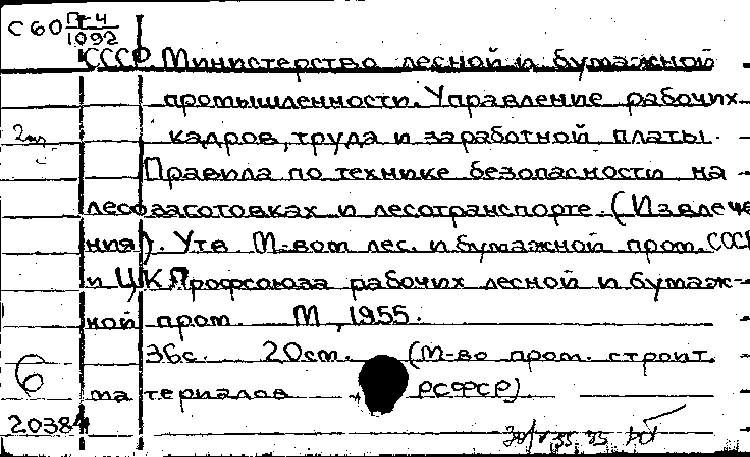 С60 Пт-4
1092
СССР Министерство лесной и бумажной
промышленности. Управление рабочих
кадров, труда и заработной платы.
Правила по технике безопасности на
лесозаготовках и лесотранспорте. (Извлече
ния). Утв М-вом лес. и бумажной пром. СССР
и ЦК Профсоюза рабочих лесной и бумаж-
ной пром. М, 1955.
36с. 20см. (М-во пром. строит.
материалов РСФСР)
6
20384